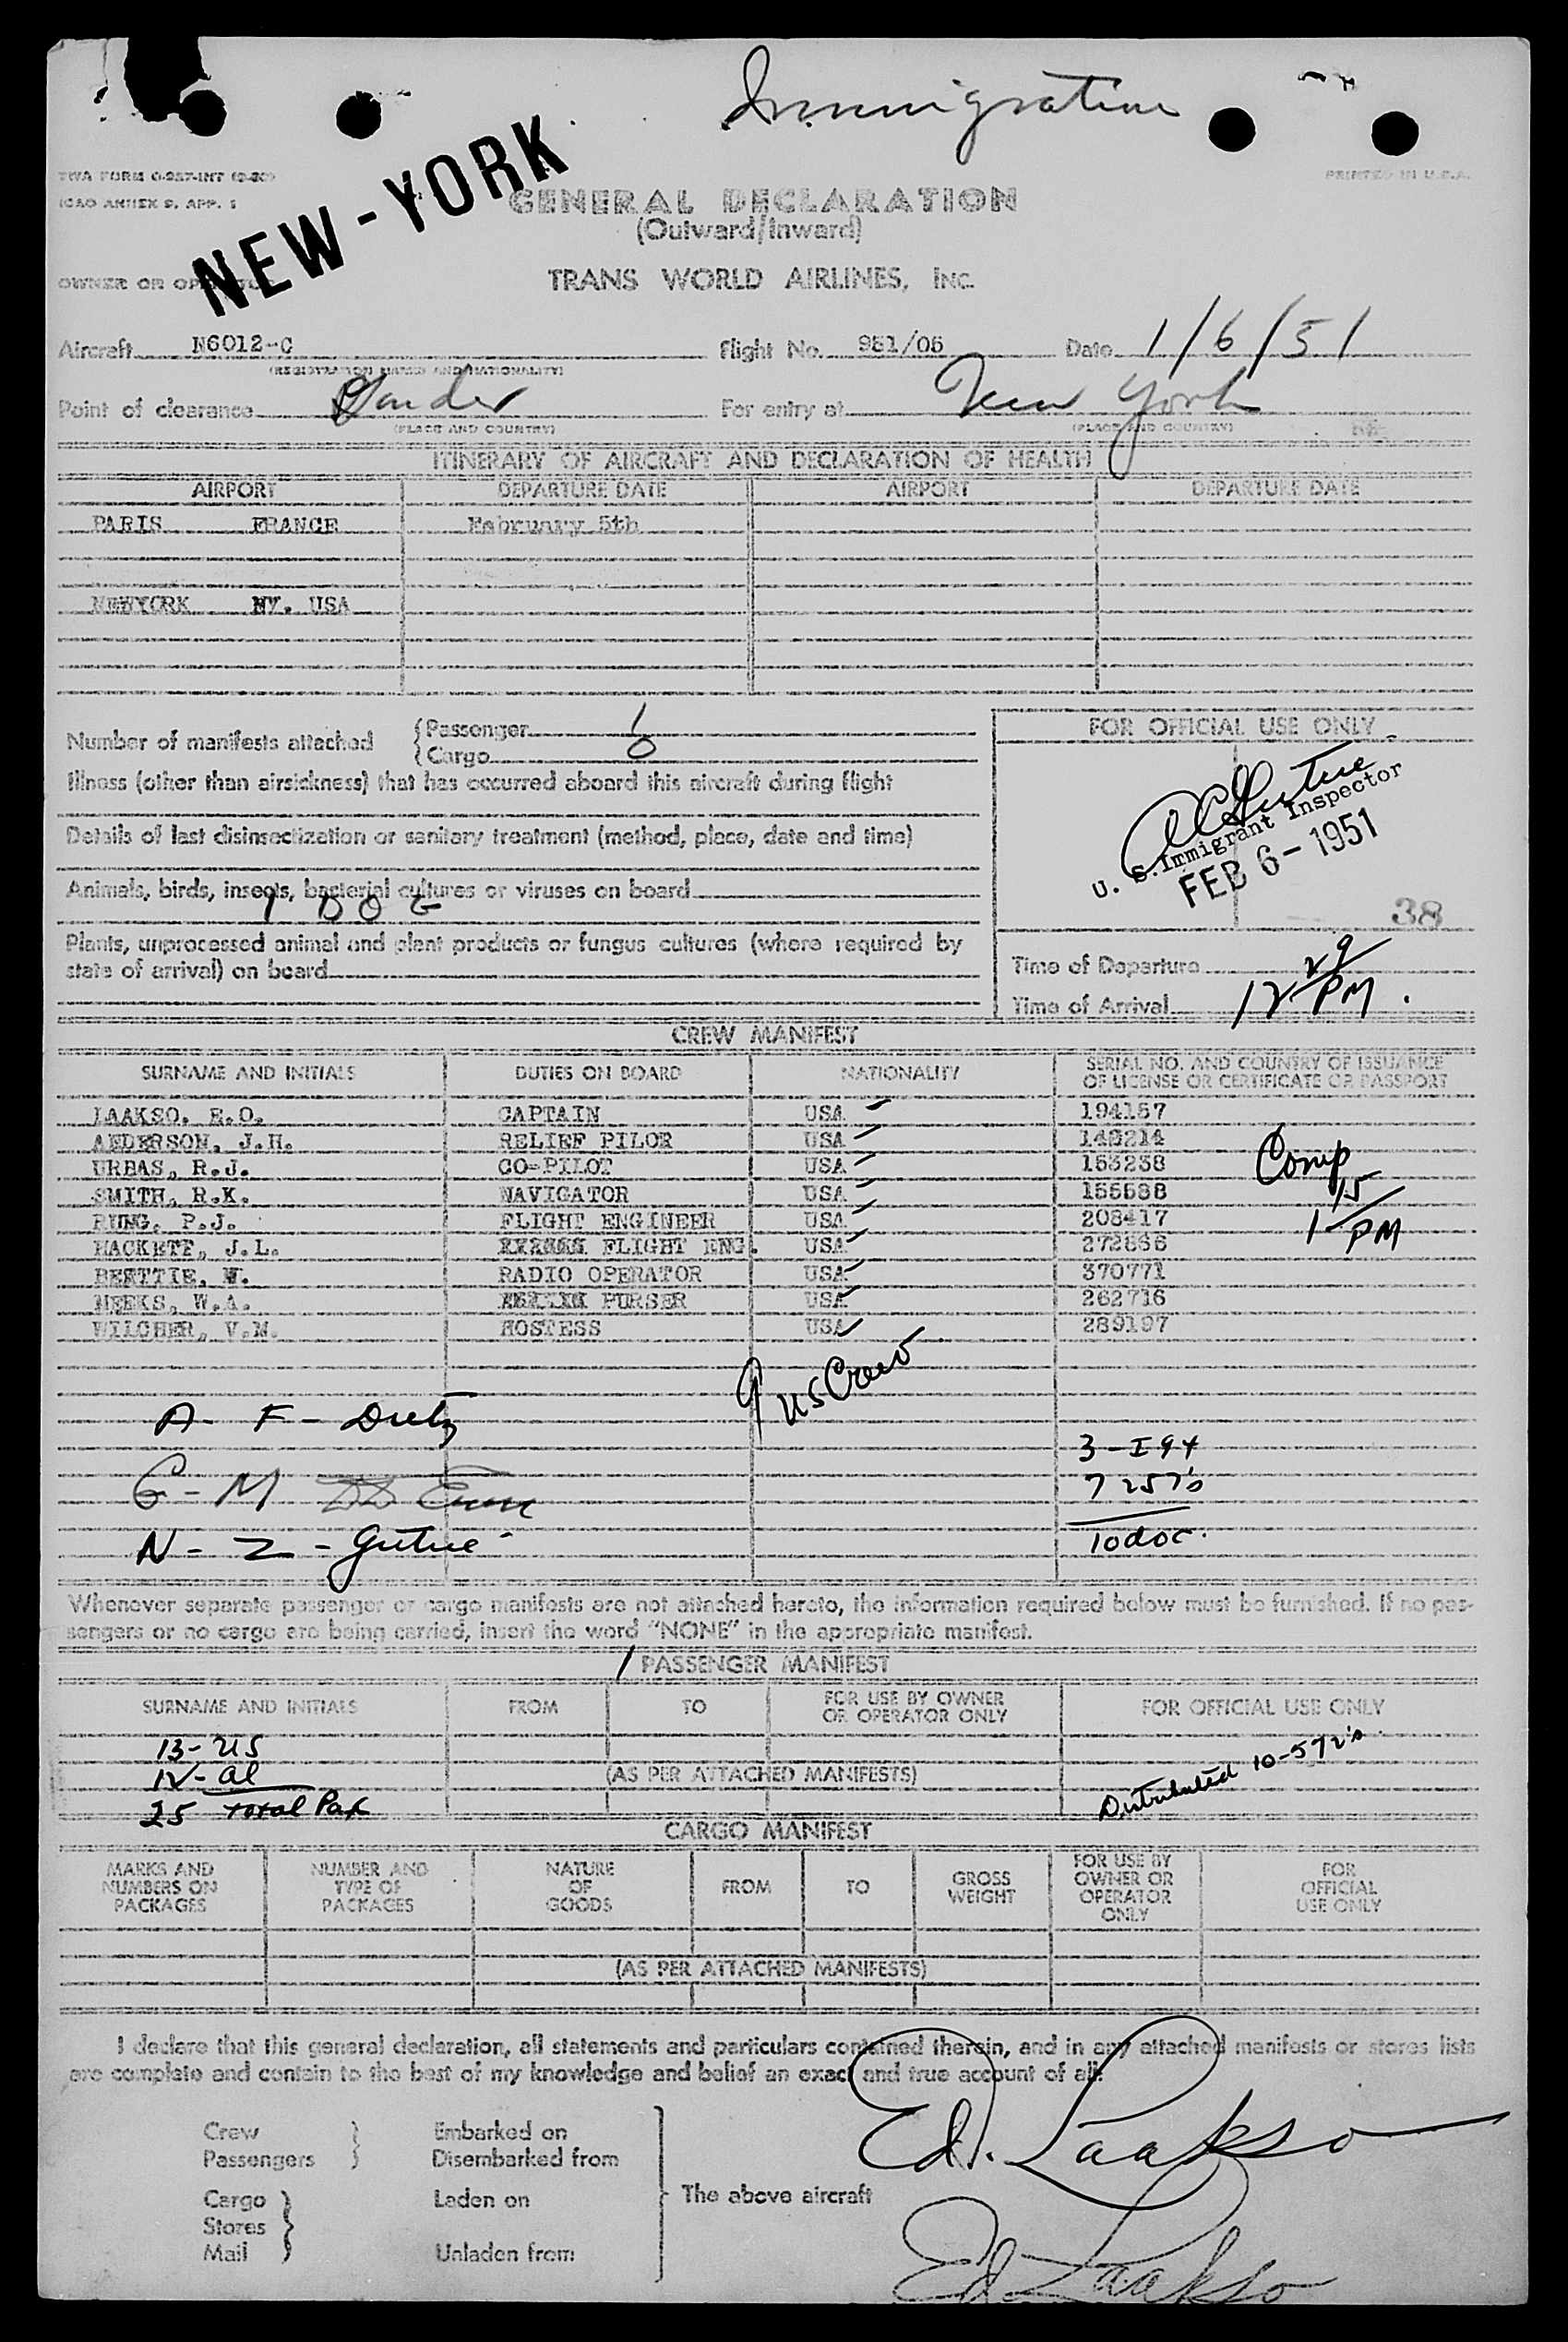 Immigration
TWA FORM O-957-INT
ICAO ANNEX 9, APP. 1
PRINTED IN U.S.A.
NEW-YORK
GENERAL DECLARATION
(Outward/Inward)
OWNER OR OPERATOR
TRANS WORLD AIRLINES, Inc.
Aircraft N6012-C Flight No. 951/05 Date 1/6/51
(REGISTRATION MARKS AND NATIONALITY)
Point of clearance Gander For entry at New York
(PLACE AND COUNTRY) (PLACE AND COUNTRY)
ITINERARY OF AIRCRAFT AND DECLARATION OF HEALTH
AIRPORT DEPARTURE DATE AIRPORT DEPARTURE DATE
PARIS FRANCE February 5th
NEWYORK NY. USA
Number of manifests attached { Passenger 1
{ Cargo 0
Illness (other than airsickness) that has occurred aboard this aircraft during flight
Details of last disinsectization or sanitary treatment (method, place, date and time)
Animals, birds, insects, bacterial cultures or viruses on board
1 DOG
Plants, unprocessed animal and plant products or fungus cultures (where required by
state of arrival) on board
FOR OFFICIAL USE ONLY
U. S. Immigrant Inspector
FEB 6 - 1951
38
Time of Departure
Time of Arrival 12 29 PM.
CREW MANIFEST
SURNAME AND INITIALS DUTIES ON BOARD NATIONALITY SERIAL NO. AND COUNTRY OF ISSUANCE
OF LICENSE OR CERTIFICATE OR PASSPORT
LAAKSO, E.O. CAPTAIN USA 194157
AEDERSON, J.H. RELIEF PILOR USA 143214
URBAS, R.J. CO-PILOT USA 153238
SMITH, R.K. NAVIGATOR USA 155538
RUNG, P.J. FLIGHT ENGINEER USA 208417
HACKETT, J.L. FLIGHT ENG. USA 272866
BERTTIE, W. RADIO OPERATOR USA 370771
MEEKS, W.A. PURSER USA 262716
WILCHER, V.N. HOSTESS USA 289197
Comp
1 15 PM
9 US Crew
A - F - Dietz
G - M
N - Z - Gutue
3 - I 94
7 257's
10 doc.
Whenever separate passenger or cargo manifests are not attached hereto, the information required below must be furnished. If no pas-
sengers or no cargo are being carried, insert the word "NONE" in the appropriate manifest.
1 PASSENGER MANIFEST
SURNAME AND INITIALS FROM TO FOR USE BY OWNER
OR OPERATOR ONLY FOR OFFICIAL USE ONLY
13 - US
12 - al
25 total Pax
(AS PER ATTACHED MANIFESTS)
Distributed 10-572's
CARGO MANIFEST
MARKS AND
NUMBERS ON
PACKAGES
NUMBER AND
TYPE OF
PACKAGES
NATURE
OF
GOODS
FROM
TO
GROSS
WEIGHT
FOR USE BY
OWNER OR
OPERATOR
ONLY
FOR
OFFICIAL
USE ONLY
(AS PER ATTACHED MANIFESTS)
I declare that this general declaration, all statements and particulars contained therein, and in any attached manifests or stores lists
are complete and contain to the best of my knowledge and belief an exact and true account of all:
Crew } Embarked on
Passengers } Disembarked from
Cargo } Laden on
Stores }
Mail } Unladen from
The above aircraft
Ed. Laakso
Ed Laakso